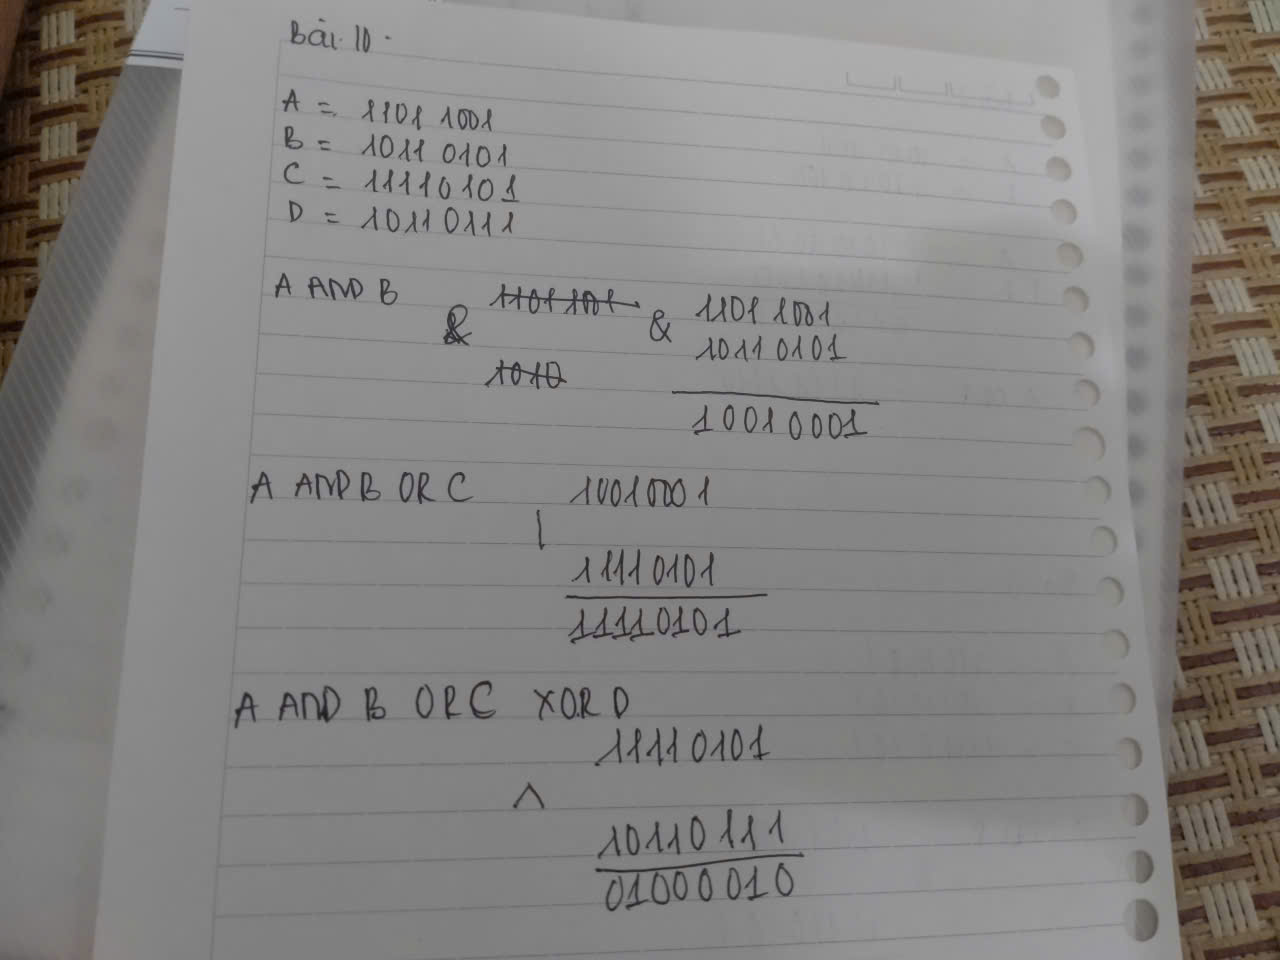 Bài 10.
A = 1101 1001
B = 1011 0101
C = 11110101
D = 10110111
A AND B
1101 101
& 1101 1001
1010
10110101
10010001
A AND B OR C 10010001
|
11110101
11110101
A AND B OR C XOR D
11110101
^
10110111
01000010